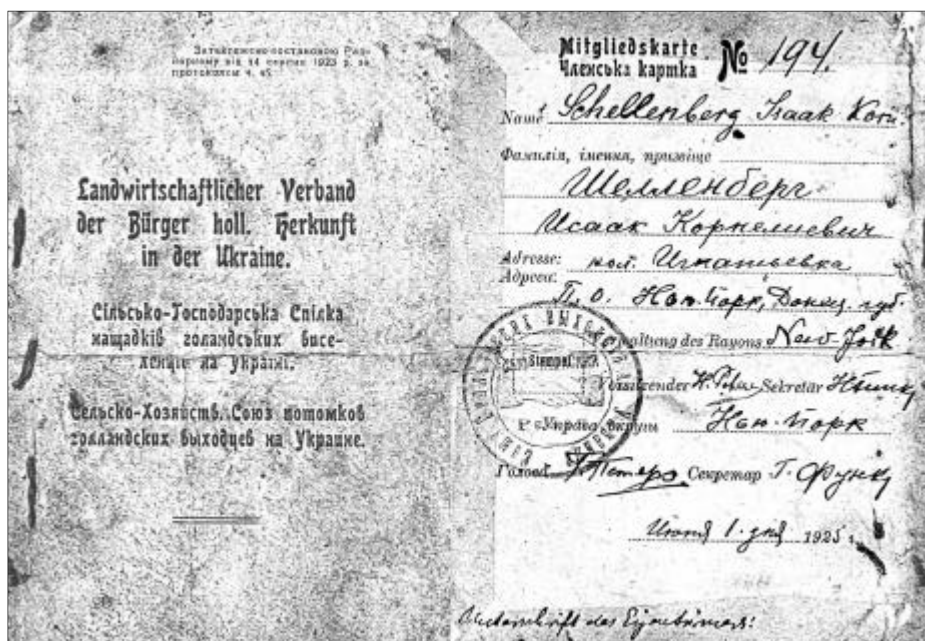 Затверджено постановою
від 14 серпня 1923 р. за
протоколом ч. 45.
Landwirtschaftlicher Verband
der Bürger holl. Herkunft
in der Ukraine.
Сільсько-Господарська Спілка
нащадків голандських висе-
на україні.
Сельско-Хозяйств. Союз потомков
голландских выходцев на Украине.
Mitgliedskarte
Членська картка № 194.
Name Schellenberg Isaak Korn.
Фамилія, імення, призвіще
Шелленберг
Исаак Корнелиевич
Adresse: кол. Игнатьевка
Адреса:
П. О. Нью-Йорк, Донец. губ.
Verwaltung des Rayons New-York
Stempel
Vorsitzender Sekretär
Управа округи Нью-Йорк
Голова Петерс Секретар Г. Функ
Июня 1. дня 1925 г.
Unterschrift des Eigentümers: